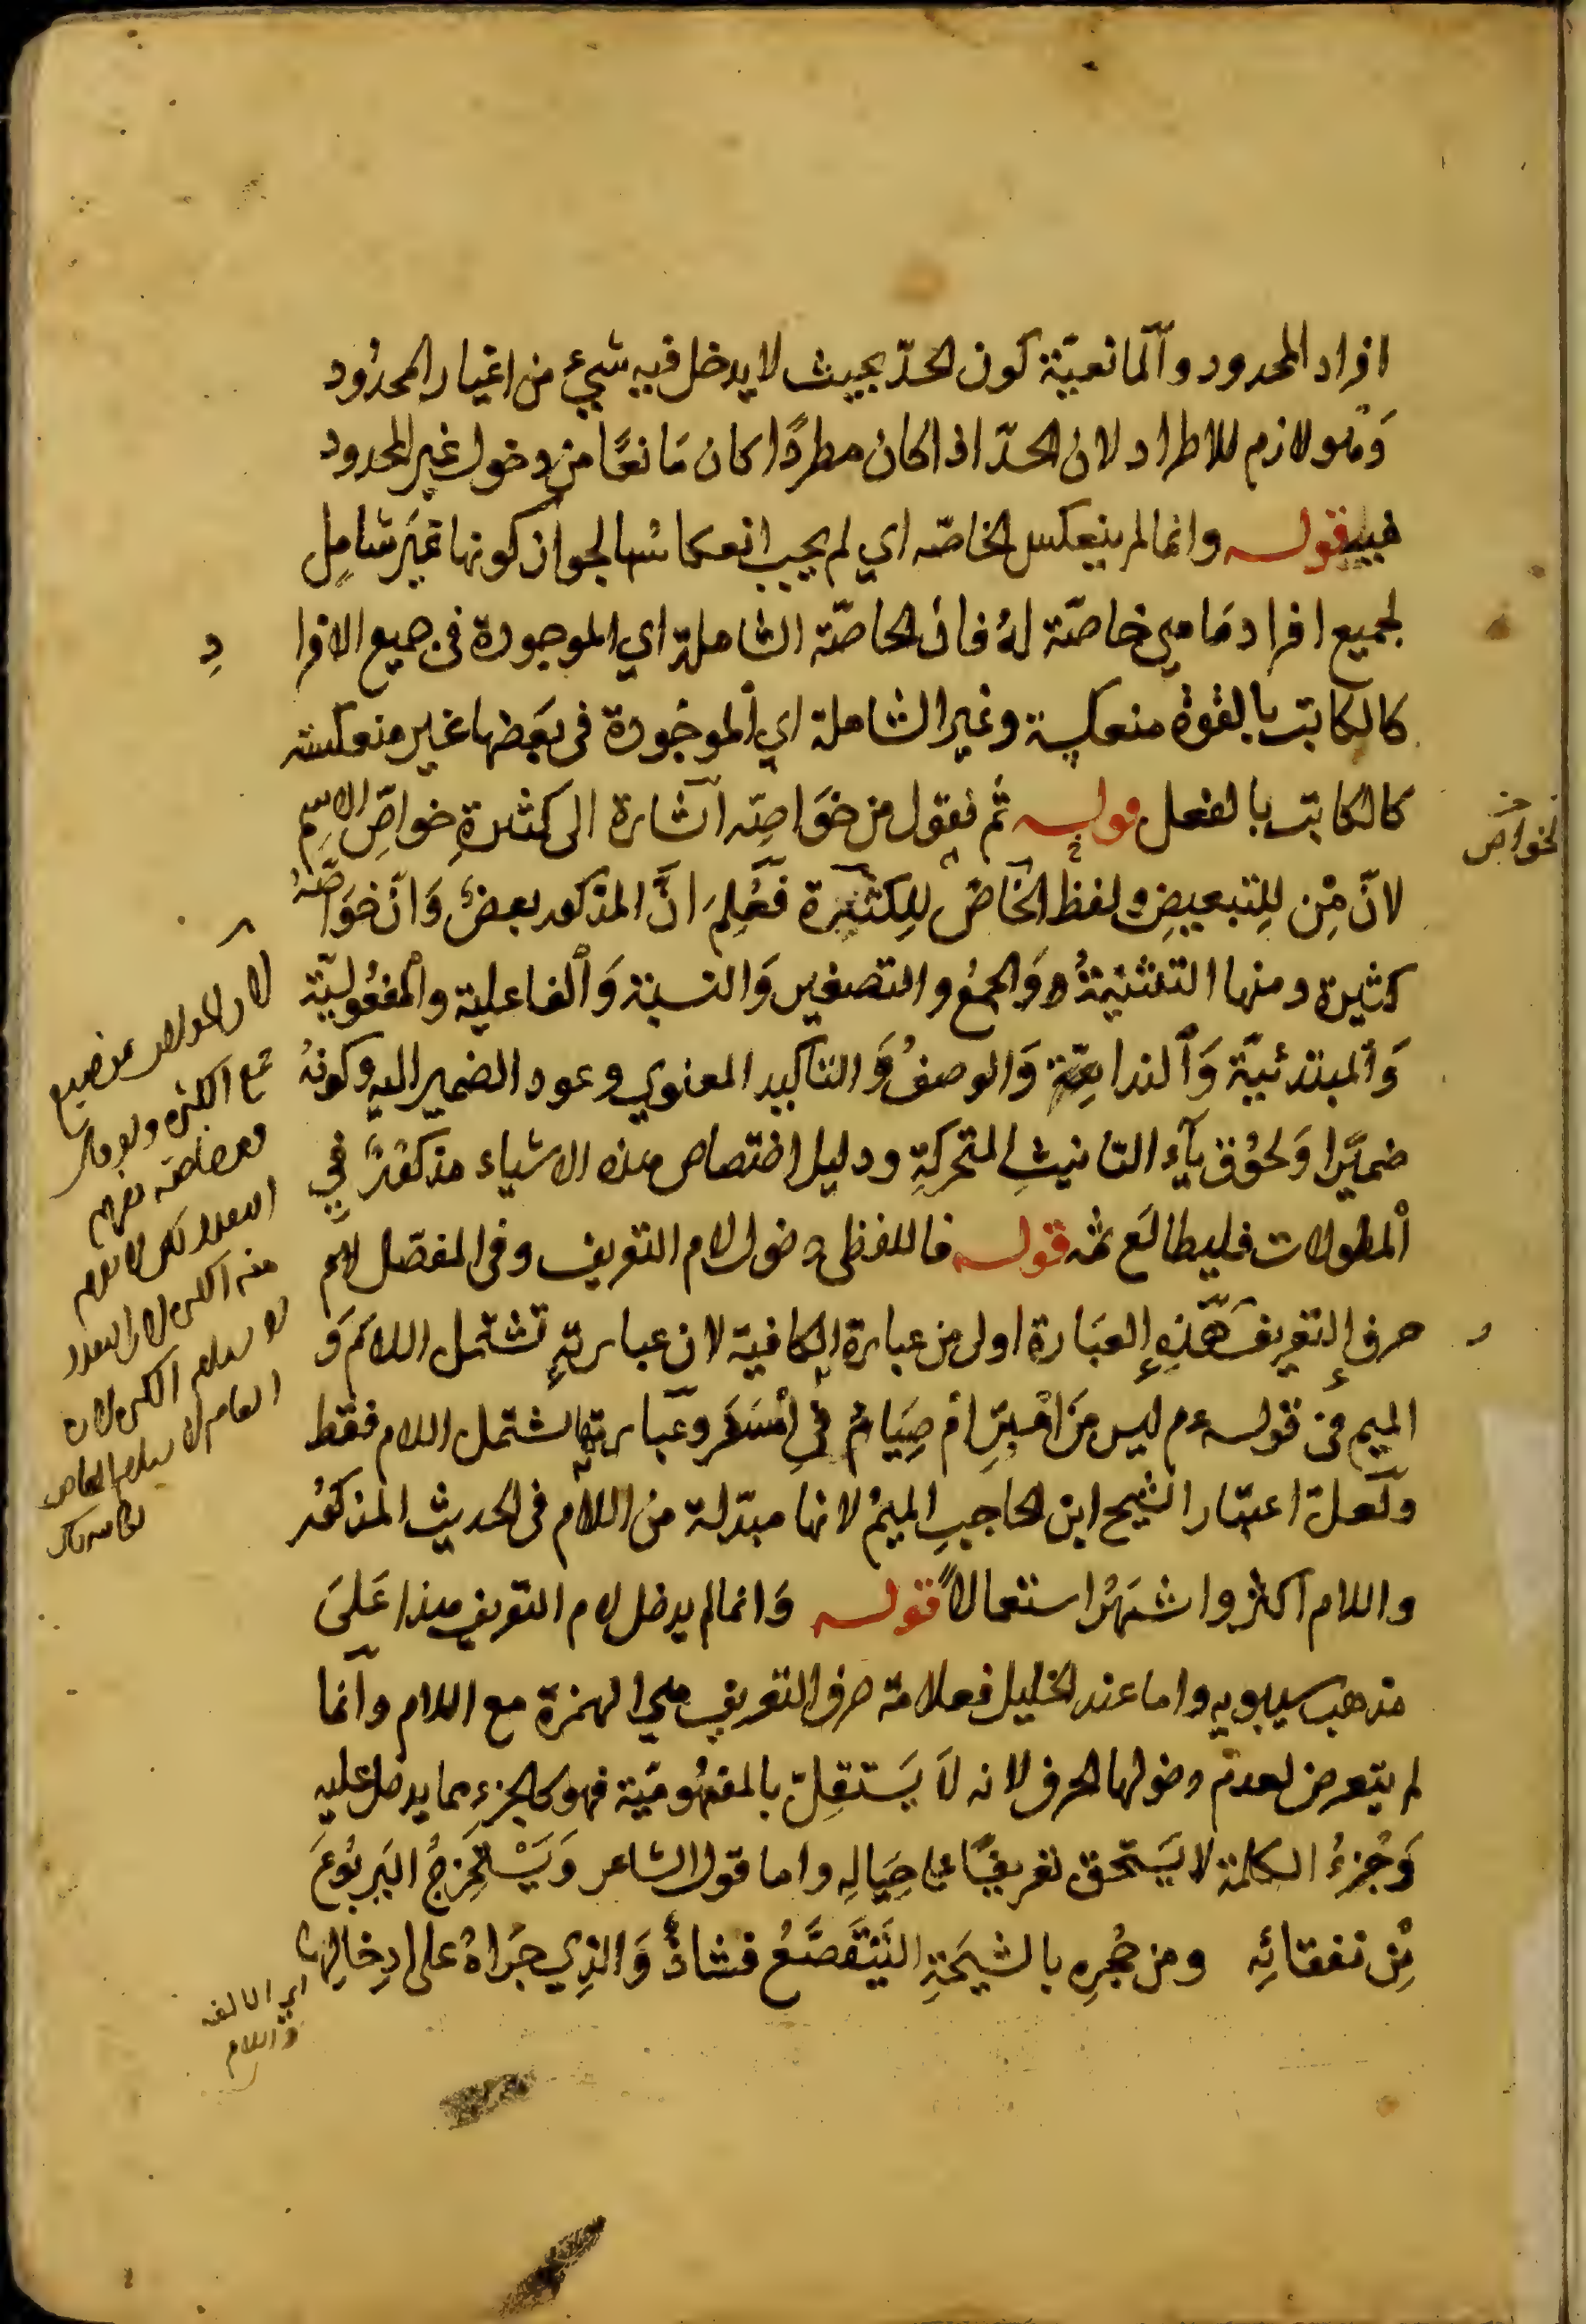 افراد المحدود والمانعيّة كون الحدّ بحيث لا يدخل فيه شيئ من اغيار المحدُود
وَهو لازم للاطراد لان الحدّ اذا كان مطردًا كان مَانعًا من دخول غير المحدود
فيه قوله وانما لم ينعكس الخاصّه اي لم يجب انعكاسُها لجواز كونها غيَر شامِل
لجميع افراد مَا هي خاصّة لهُ فان الخاصّة الشاملة اي الموجودة فى جميع الافرا دِ
كالكاتب بالقوة منعكسة وغير الشاملة اي الموجُودة فى بَعضها غير منعكسة
كالكاتب بالفعل قوله ثم نقول من خوَاصِّه اشارة الى كثرةِ خواصِّ الاِسِم
لانّ مِن لِلتبعيضِ ولفظ الخَاصّ لِلكثرة فَعُلِمَ انَّ المذكور بعضٌ وَانّ خوَاصَّهُ
الخواص
كثيرة ومنها التثنيةُ وَالجمعُ والتصغير وَالنسبة وَالفاعلية والمفعُوليّة
وَالمبتدئيّة وَالندائيّة وَالوصفُ وَالتاكيد المعنوي وعود الضمير اليه وكونُه
ضميَرا وَلحُوق تآء التانيثِ المتحركةِ ودليل اختصاص هذه الاشياء مذكُورٌ في
المطولات فليطالَع ثمه قوله فاللفظى دخول لام التعريف وفى المفصّل لاِسم
حرف التعريف هَذِهِ العبَارة اولى من عبارة الكافية لان عبارتهِ تشتمل اللامَ وَ
الميم فى قوله عم ليس مَن امْبِرِّ امْ صِيَامُ في امْسَفَر وعبَارته اشتمل اللام فقط
ولَعلّ اعتبار الشيح ابن الحاجبِ الميمُ لانها مبدّلة من اللام فى الحديث المذكور
واللام اكثر واشهَرُ استعمالاً قوله وَانما لم يدخل لام التعريف هذا عَلىَ
مذهب سيبويه واما عند الخليل فعلامة حرف التعريف هي الهمزة مع اللام وانما
لم يتعرض لعدم دخولها الحرف لانه لاَ يَستقِلّ بالمفهُوميّة فهو كالجزءِ مما يدخل عليه
وَجُزءُ الكلمة لا يَستحق تعريفًا على حِيَالِه واما قول الشاعر وَيَسْتخرِجُ اليَربُوعَ
مِن نفقائِه ومن جُحرِه بالشيحَةِ اليَتَقَصَّعُ فشاذٌّ وَالذِي جرَاهُ على ادِخالِها
اي الالف
واللام